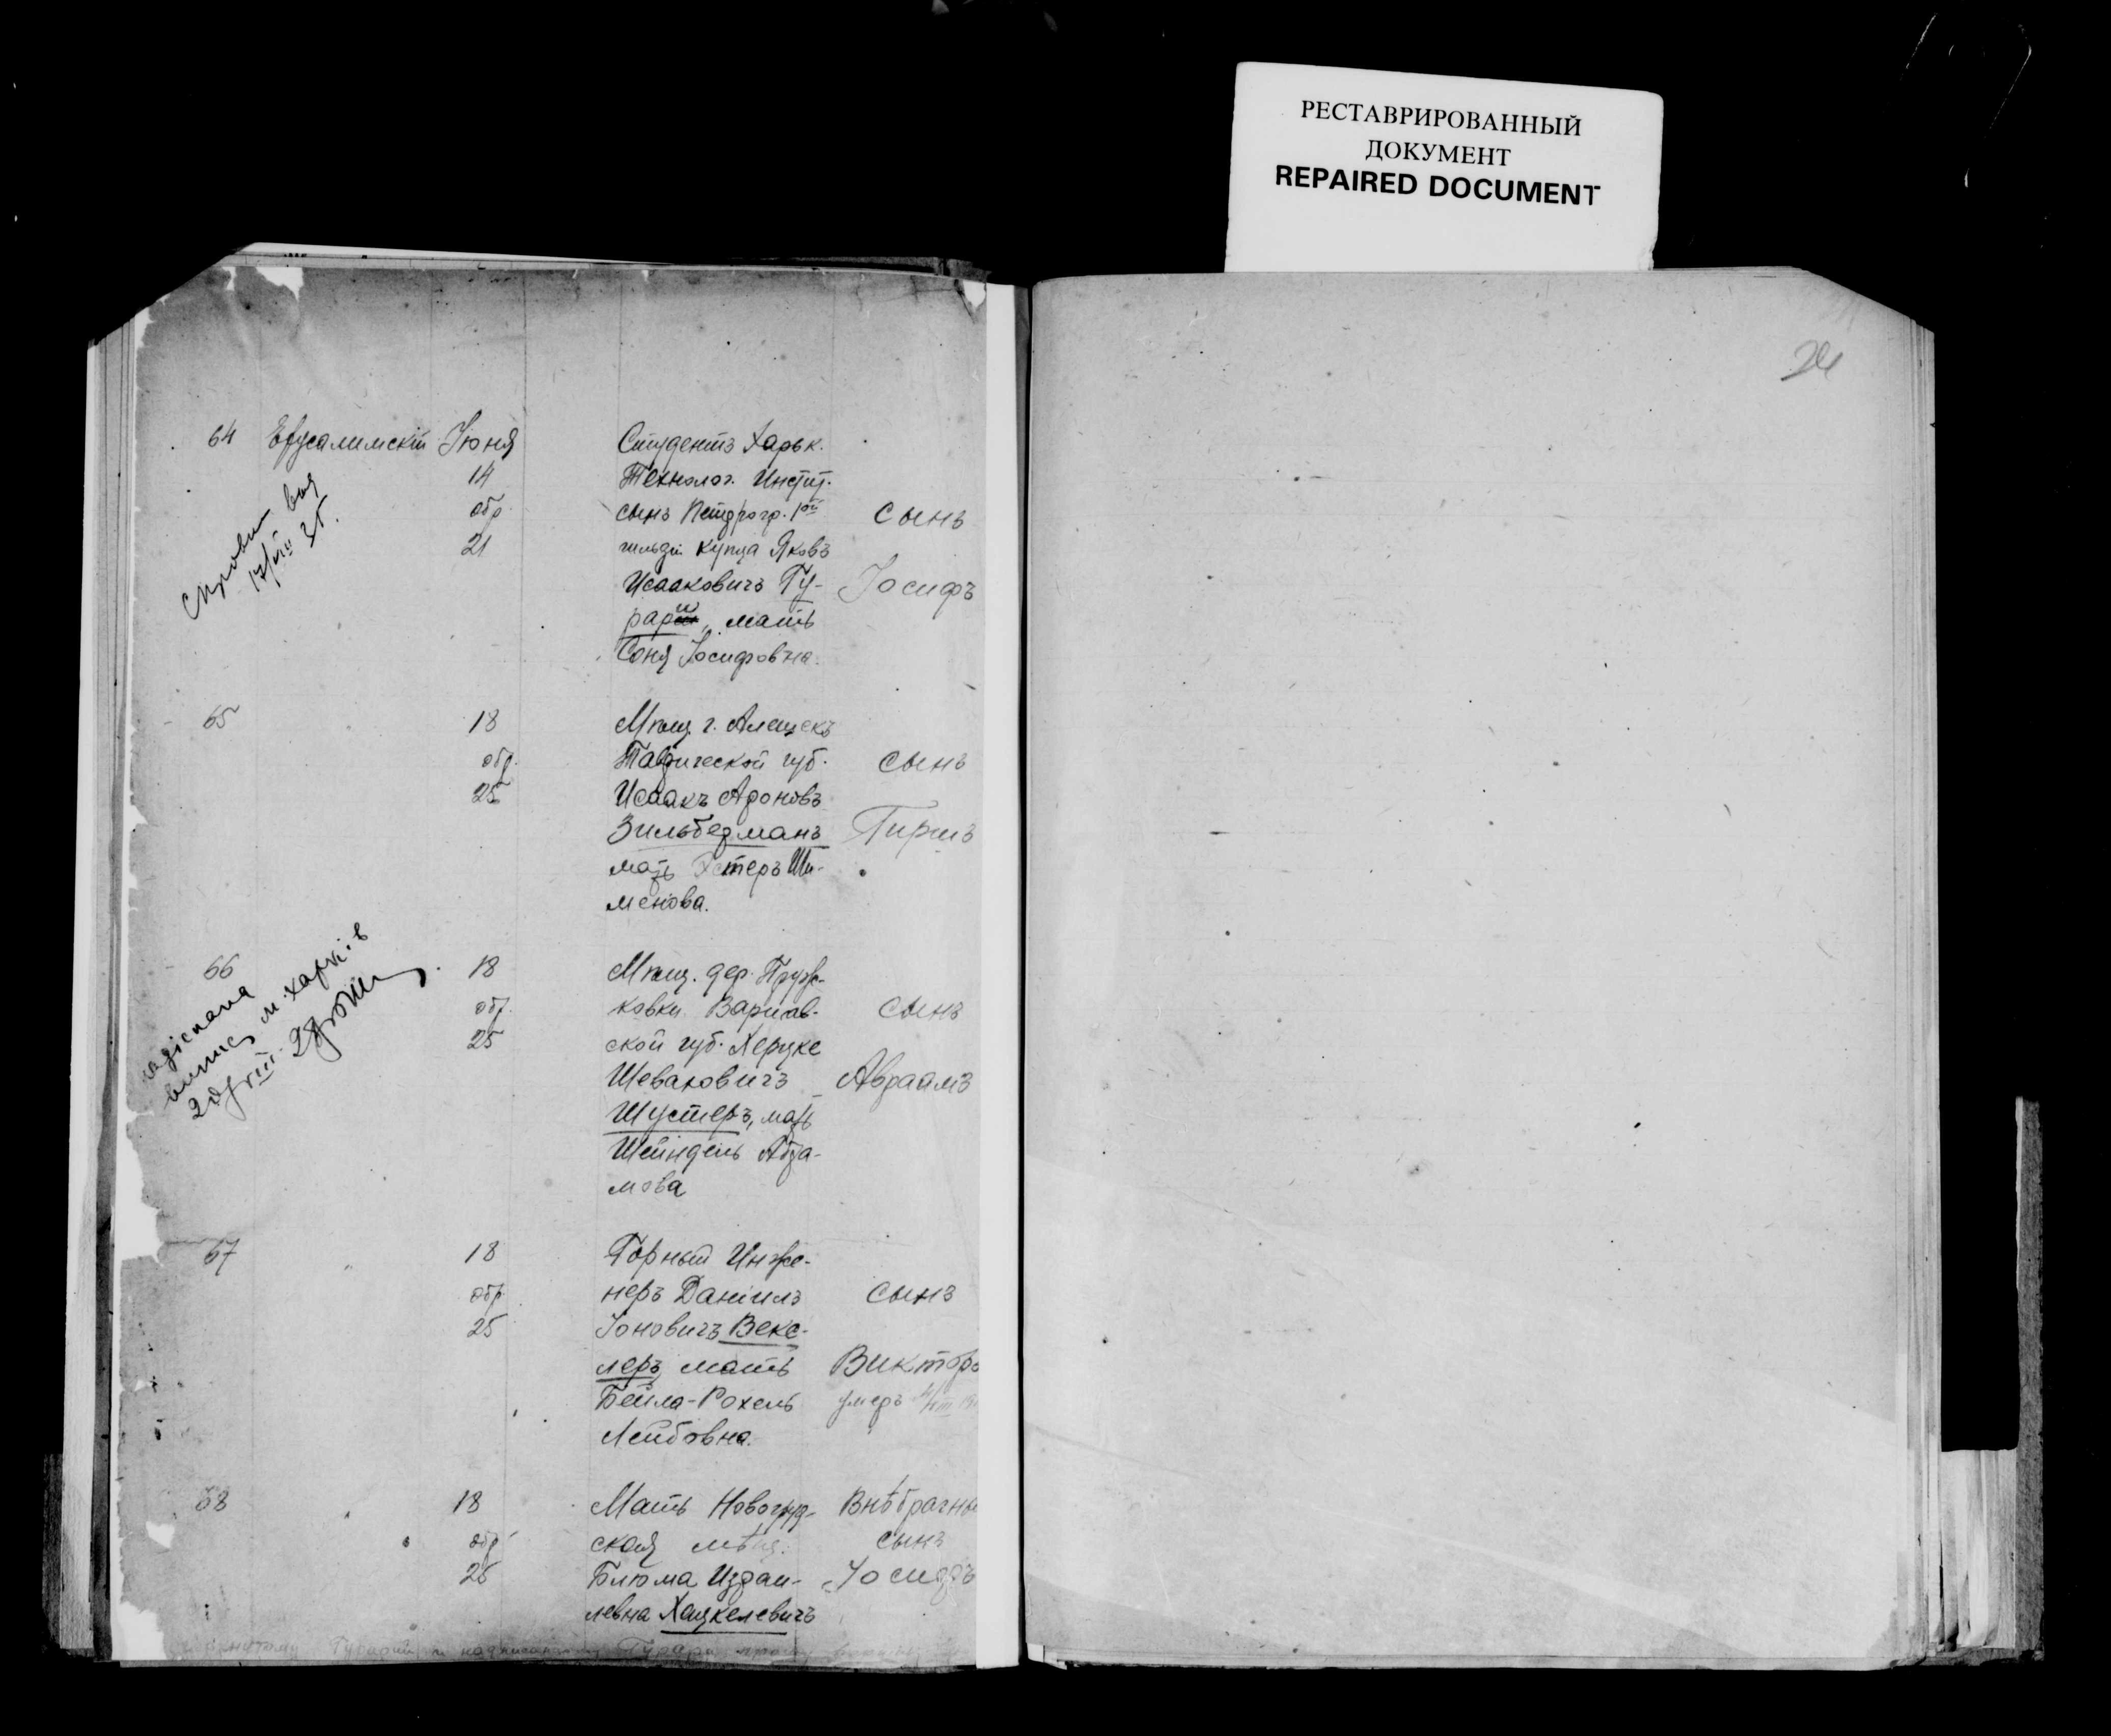 РЕСТАВРИРОВАННЫЙ
ДОКУМЕНТ
REPAIRED DOCUMENT
24
64 Ерусалимскій Іюня 14 обр. 21
Студентъ Харьк.
Технолог. Инстит.
сынъ Петрогр. 1ой
гильдіи купца Яковъ
Исааковичъ Гу-
рари, мать
Соня Іосифовна.
сынъ
Іосифъ
17/VIII 35.
65 18 обр. 25
Мѣщ. г. Алешекъ
Таврической губ.
Исаакъ Ароновъ
Зильберманъ
мать Эстеръ Ши-
менова.
сынъ
Гиршъ
66 18 обр. 25
Мѣщ. дер. Пруж-
ковки Варшав-
ской губ. Херцке
Шеваховичъ
Шустеръ, мать
Шейндель Абра-
мова
сынъ
Авраамъ
м. Харків
67 18 обр. 25
Горный Инже-
неръ Даніилъ
Іоновичъ Векс-
леръ, мать
Бейла-Рохель
Лейбовна.
сынъ
Викторъ
умеръ
68 18 обр. 25
Мать Новогруд-
ская мѣщ.
Блюма Израи-
левна Хацкелевичъ
Внѣбрачный
сынъ
Іосифъ